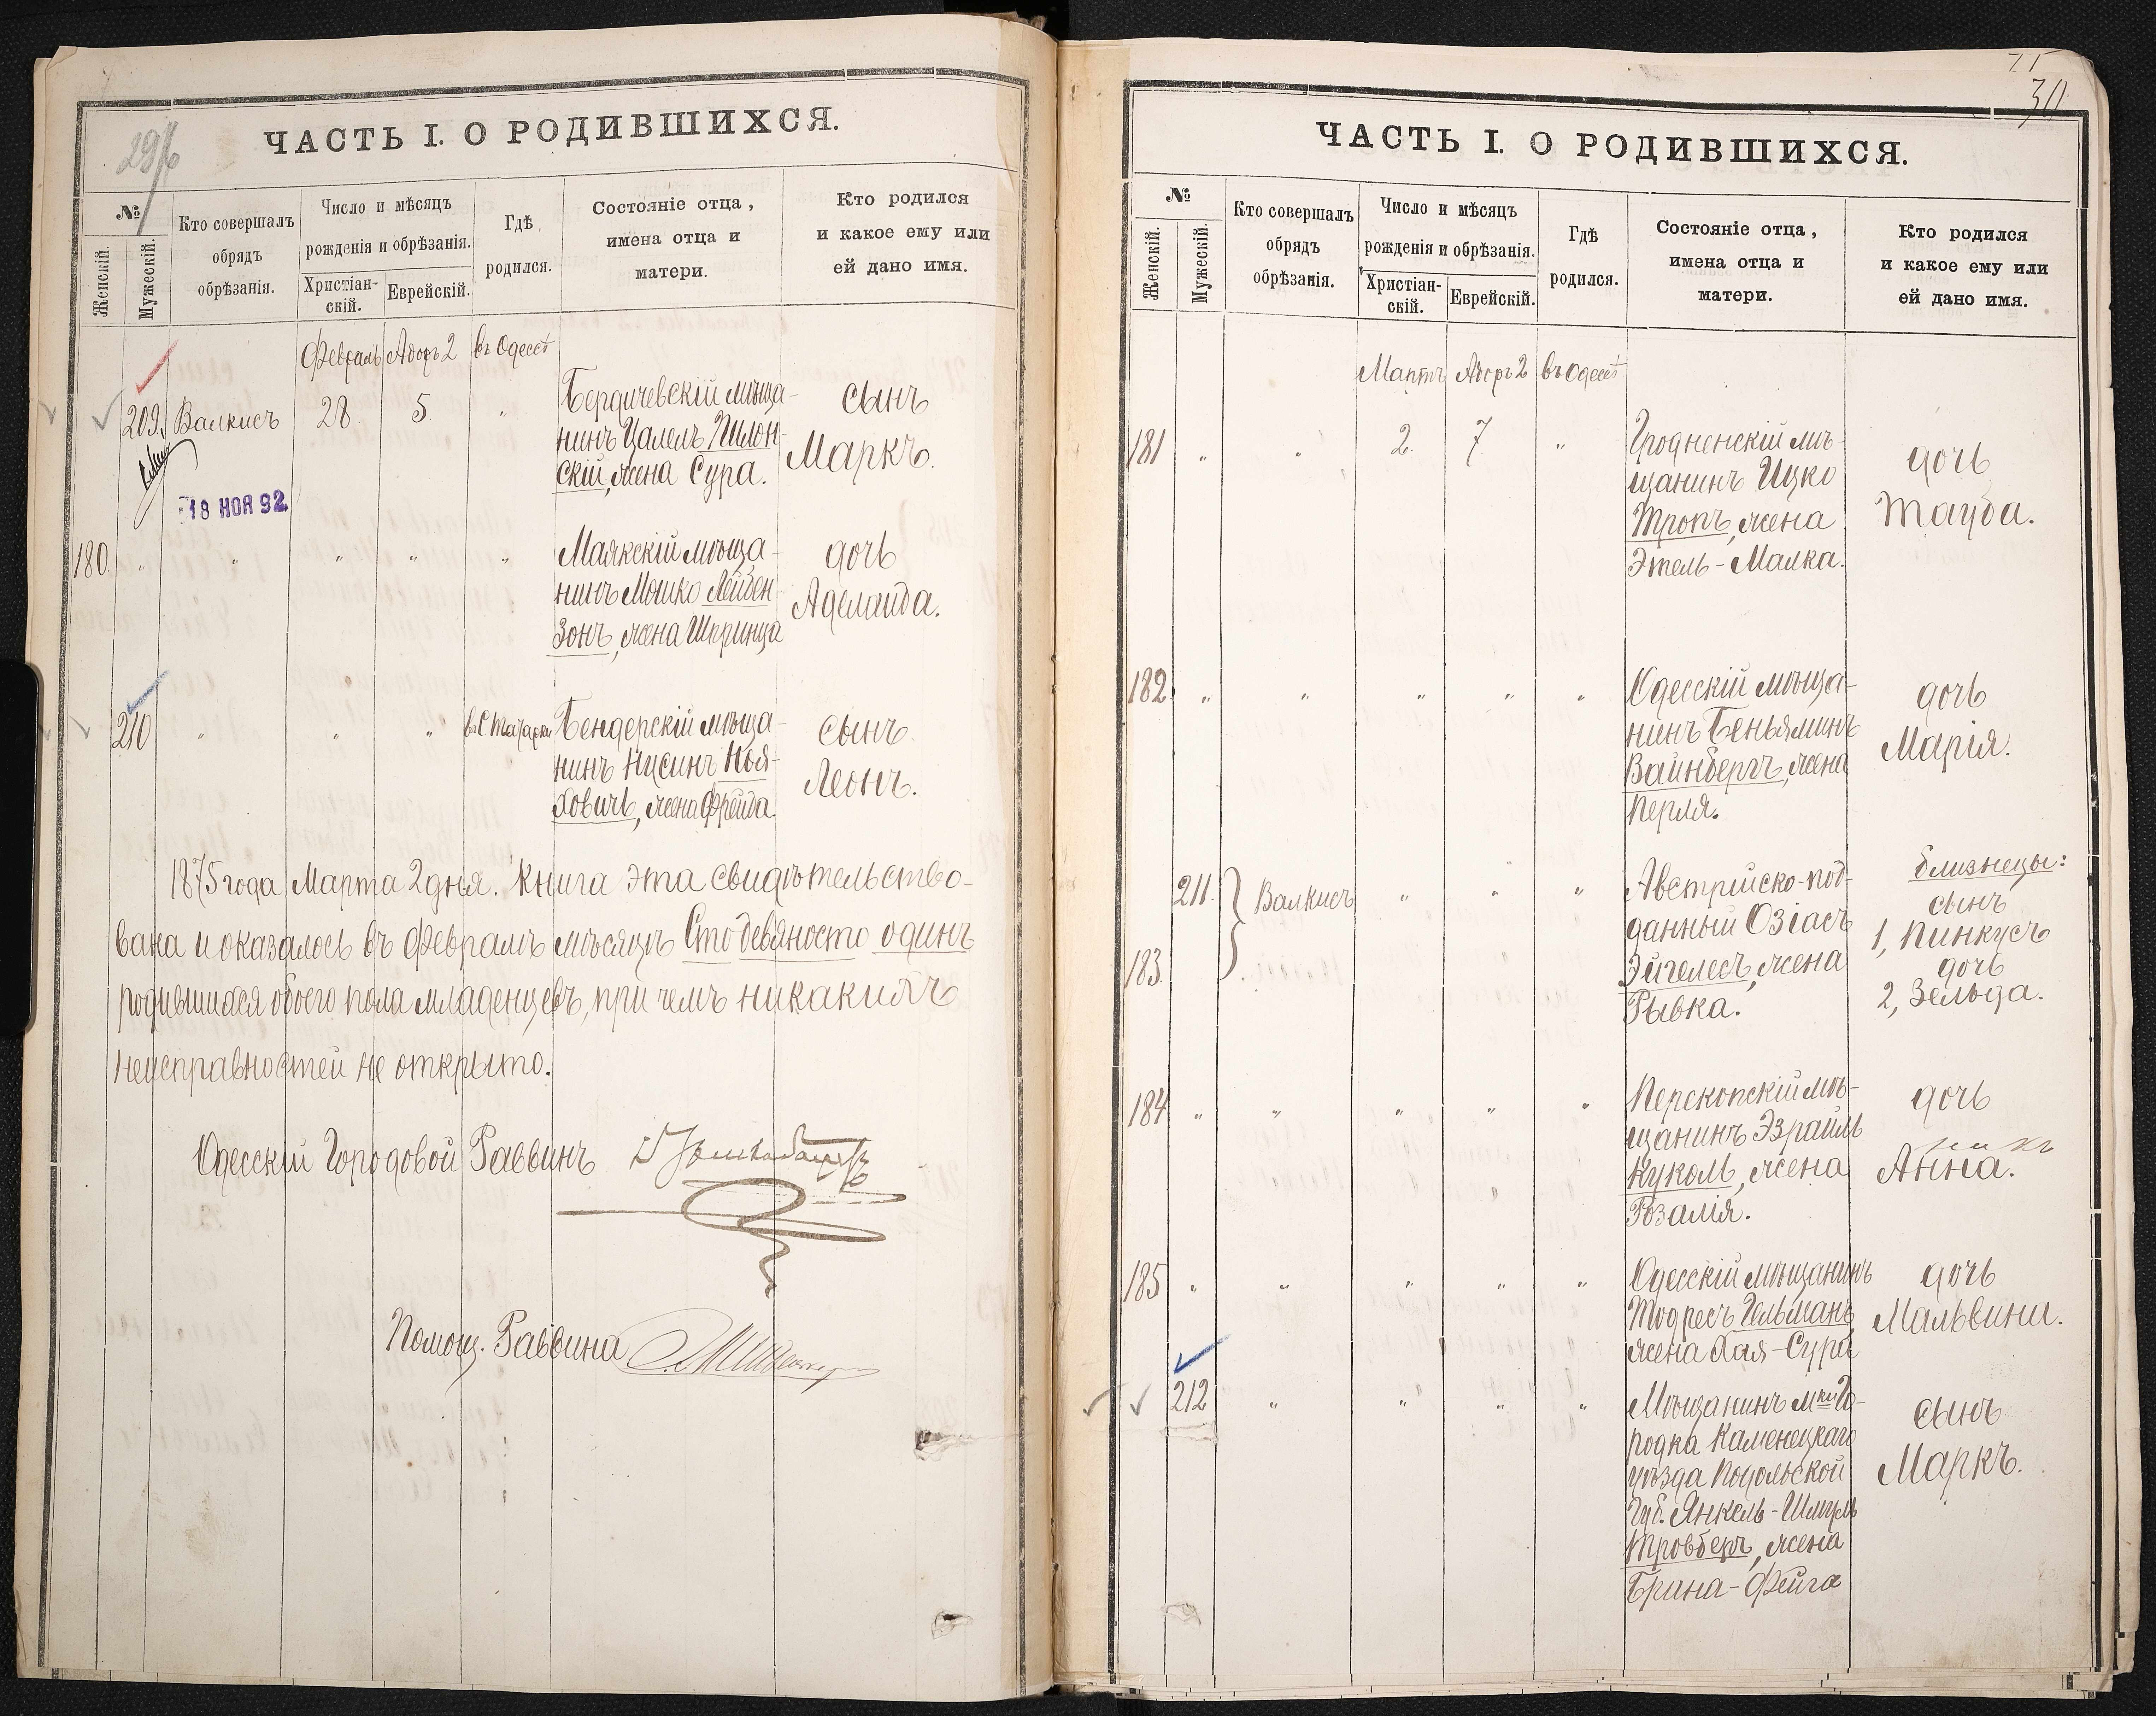 296
ЧАСТЬ I. О РОДИВШИХСЯ.
№
Женскій.
Мужескій.
Кто совершалъ
обрядъ
обрѣзанія.
Число и мѣсяцъ
рожденія и обрѣзанія.
Христіан-
скій.
Еврейскій.
Гдѣ
родился.
Состояніе отца,
имена отца и
матери.
Кто родился
и какое ему или
ей дано имя.
Февраль Адаръ 2 въ Одессѣ
209. Валкисъ 28 5. „
Бердичевскій мѣща-
нинъ Цалелъ Пилон-
скій, жена Сура.
сынъ
Маркъ.
18 НОЯ 92.
180. „ „ „ „ „
Маякскій мѣща-
нинъ Мошко Лейбен-
зонъ, жена Шпринца
дочь
Аделаида.
210 „ „ „
Бендерскій мѣща-
нинъ Нусинъ Ноя-
ховичъ, жена Фрейда.
сынъ
Леонъ.
1875 года Марта 2 дня. Книга эта свидѣтельство-
вана и оказалось въ Февралѣ мѣсяцѣ Сто девяносто одинъ
родившихся обоего пола младенцевъ, при чемъ никакихъ
неисправностей не открыто.
Одесскій Городовой Раввинъ
Помощ. Раввина
30
ЧАСТЬ I. О РОДИВШИХСЯ.
№
Женскій.
Мужескій.
Кто совершалъ
обрядъ
обрѣзанія.
Число и мѣсяцъ
рожденія и обрѣзанія.
Христіан-
скій.
Еврейскій.
Гдѣ
родился.
Состояніе отца,
имена отца и
матери.
Кто родился
и какое ему или
ей дано имя.
Мартъ Адаръ 2 въ Одессѣ
181 „ „ 2. 7 „
Гродненскій мѣ-
щанинъ Ицко
Тропъ, жена
Этель-Малка.
дочь
Тауба.
182 „ „ „ „ „
Одесскій мѣща-
нинъ Беньяминъ
Вайнбергъ, жена
Перля.
дочь
Марія.
211. Валкисъ „ „ „
183.
Австрійско-под-
данный Озіасъ
Эйгелесъ, жена
Рывка.
близнецы:
сынъ
1, Пинкусъ
дочь
2, Зельда.
184 „ „ „ „ „
Перекопскій мѣ-
щанинъ Эзраиль
Куколь, жена
Розалія.
дочь
Анна.
185 „ „ „ „ „
Одесскій мѣщанинъ
Тодресъ Гельманъ,
жена Хая-Сура
дочь
Мальвина.
212 „ „ „ „
Мѣщанинъ мки Го-
родка Каменецкаго
уѣзда Подольской
Губ. Янкель-Шмуль
Тровберъ, жена
Брана-Фейга
сынъ
Маркъ.